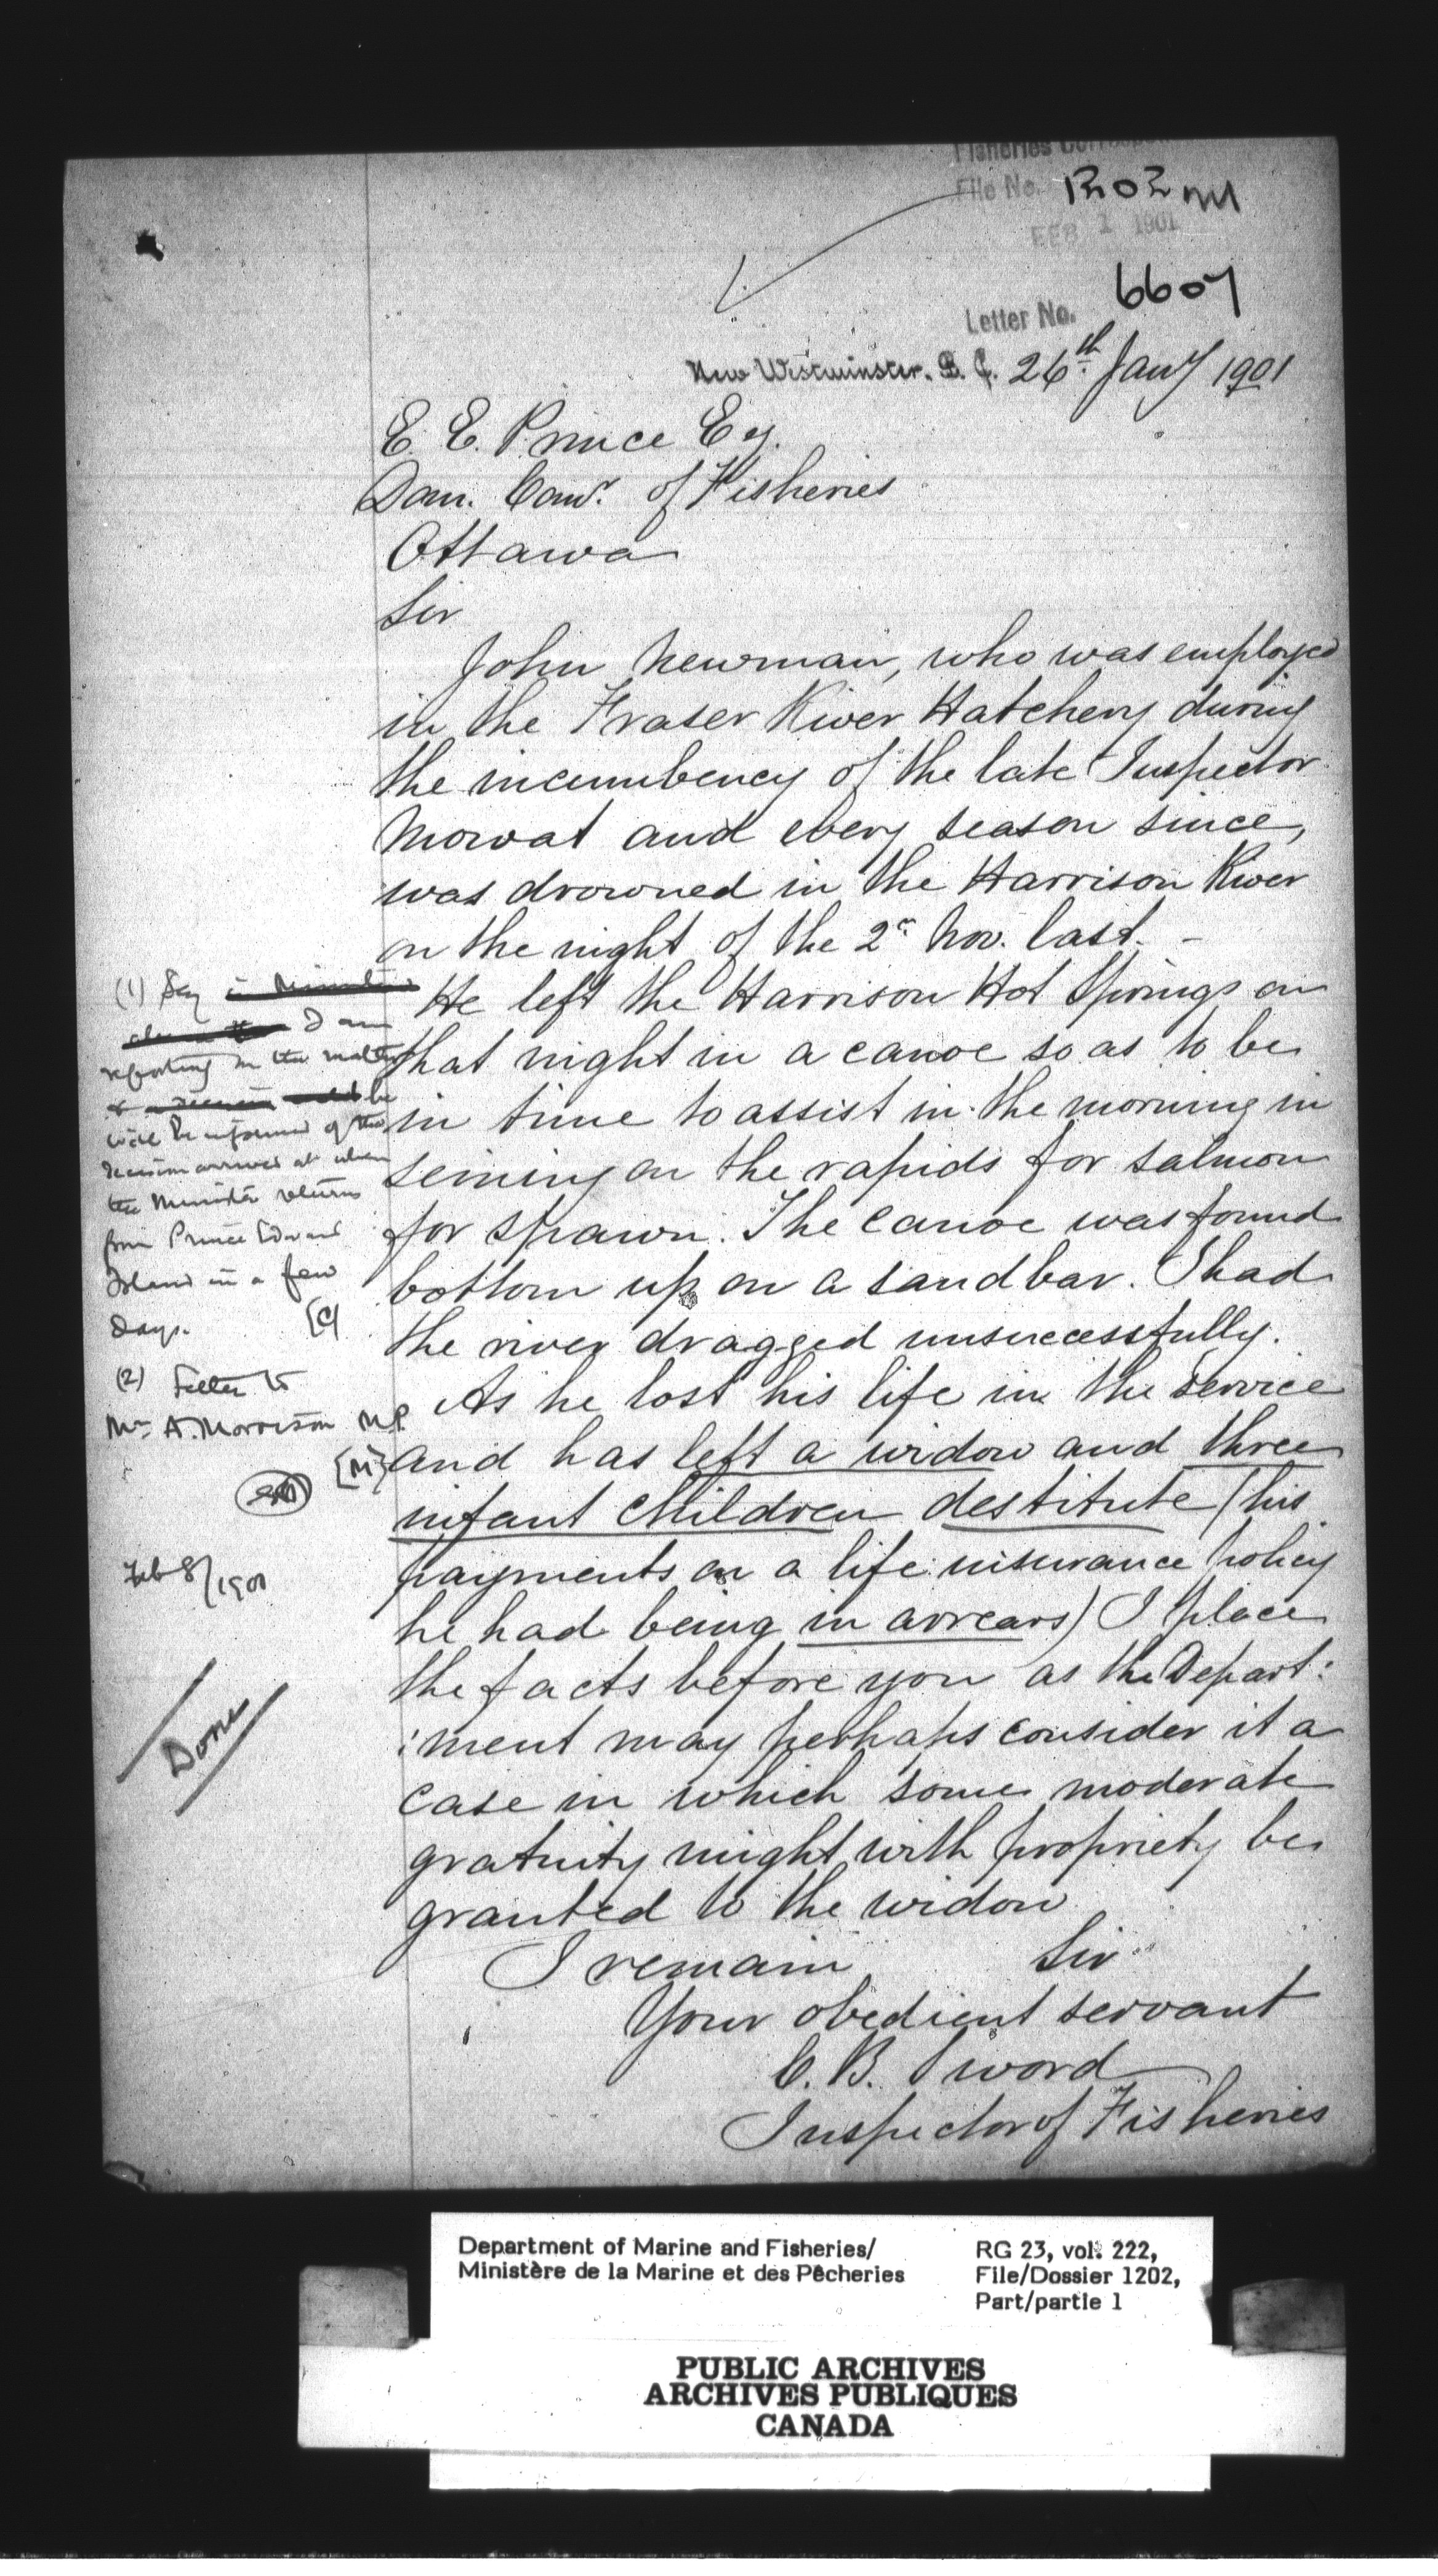 Fisheries
File No. 1202
FEB 1 1901
Letter No. 6607
New Westminster. B. C. 26th Jany 1901
E. E. Prince Esq.
Dom. Comr. of Fisheries
Ottawa
Sir
John Newman, who was employed
in the Fraser River Hatchery during
the incumbency of the late Inspector
Mowat and every season since,
was drowned in the Harrison River
on the night of the 2d Nov. last. -
He left the Harrison Hot Springs on
that night in a canoe so as to be
in time to assist in the morning in
seining on the rapids for salmon
for spawn. The canoe was found
bottom up on a sand bar. I had
the river dragged unsuccessfully.
As he lost his life in the service
and has left a widow and three
infant children destitute (his
payments on a life insurance policy
he had being in arrears) I place
the facts before you as the Depart:
:ment may perhaps consider it a
case in which some moderate
gratuity might with propriety be
granted to the widow
I remain Sir
Your obedient servant
C. B. Sword
Inspector of Fisheries
(1) Say
I am
reporting on the matter
& he
will be informed of the
decision arrived at when
the Minister returns
from Prince Edward
Island in a few
days.
(2) Letter to
Mr. A. Morrison M.P.
[M]
Feb 8/1901
Done
Department of Marine and Fisheries/
Ministère de la Marine et des Pêcheries
RG 23, vol. 222,
File/Dossier 1202,
Part/partie 1
PUBLIC ARCHIVES
ARCHIVES PUBLIQUES
CANADA